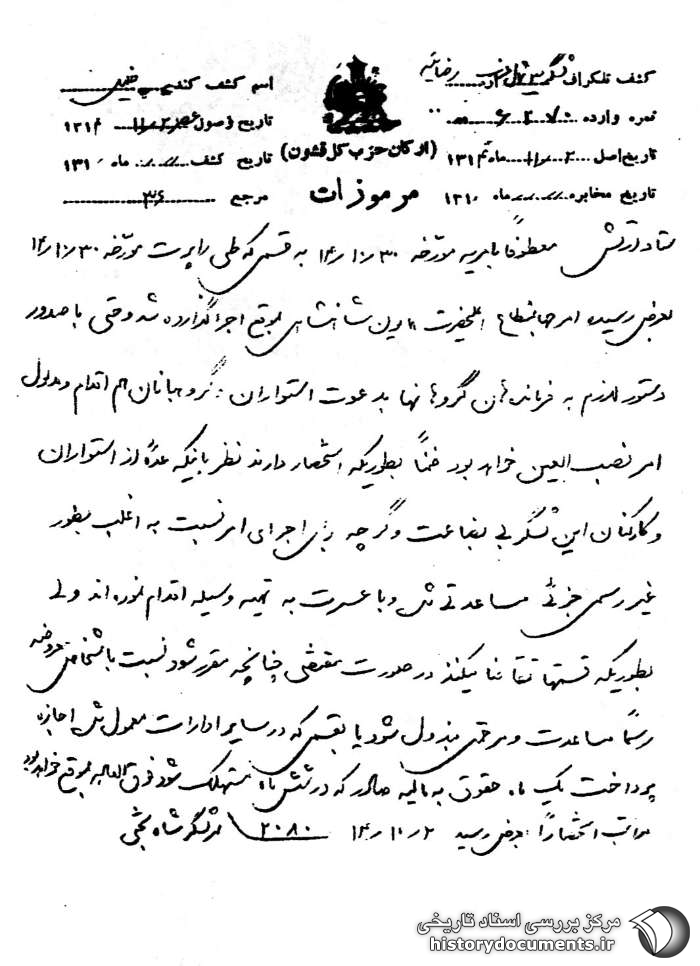 کشف تلگراف لشگر شمال غرب رضائیه
اسم کشف کننده
نمره وارده
تاریخ وصول ۱۳۱۴
(ارکان حزب کل قشون)
تاریخ اصل ۱۳۱۴
تاریخ کشف ماه ۱۳۱۰
تاریخ مخابره ماه ۱۳۱۰
مرموزات
مرجع ۳۶
ستاد ارتش معطوفاً بامریه مورخه ۱۴/۱۰/۳۰ به قسمی که طی راپرت مورخه ۱۴/۱۰/۳۰
بعرض رسیده امر مطاع اعلیحضرت همایون شاهنشاهی بموقع اجرا گذارده شد وحتی با صدور
دستور لازم به فرماندهان گروهانها بدعوت استواران و گروهبانان هم اقدام و مدلول
امر نصب العین خواهد بود ضمناً بطوریکه استحضار دارند نظر باینکه عدهٔ از استواران
و کارکنان این لشگر بی بضاعت وگرچه برای اجرای امر نسبت به اغلب بطور
غیر رسمی جزئی مساعدتی شده و با عسرت به تهیه وسیله اقدام نموده اند ولی
بطوریکه قسمتها تقاضا میکنند در صورت مقتضی چنانچه مقرر شود نسبت باشخاص معروضه
رسماً مساعدت و مرحمتی مبذول شود یا بقسمی که در سایر ادارات معمول شده اجازه
پرداخت یک ماه حقوق به مالیه صادر که در شش ماه مستهلک شود فوق العاده بموقع خواهد بود
مراتب استحضاراً بعرض رسید ۲ ر ۱۰ ر ۱۴ ۲۰۸۰ سرلشگر شاه بختی
مرکز بررسی اسناد تاریخی
historydocuments.ir